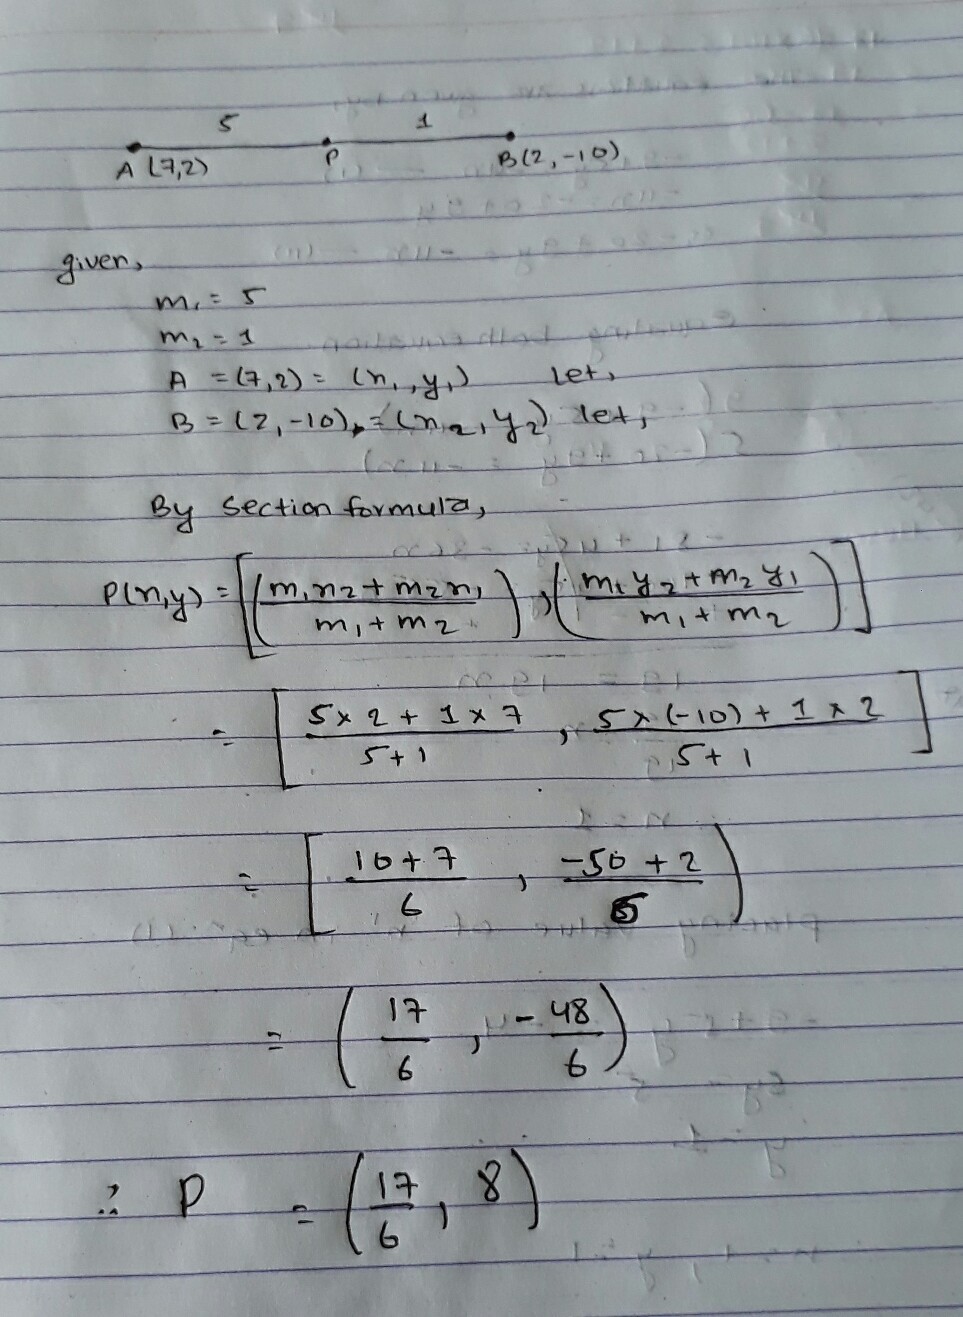 5 1
A (7,2) P B(2,-10)
given,
m₁ = 5
m₂ = 1
A = (7,2) = (x₁, y₁) let,
B = (2,-10) = (x₂, y₂) let,
By section formula,
P(x,y) = [((m₁x₂ + m₂x₁)/(m₁ + m₂)), ((m₁y₂ + m₂y₁)/(m₁ + m₂))]
= [(5×2 + 1×7)/(5+1), (5×(-10) + 1×2)/(5+1)]
= [(10+7)/6, (-50+2)/6)
= (17/6, -48/6)
∴ P = (17/6, 8)